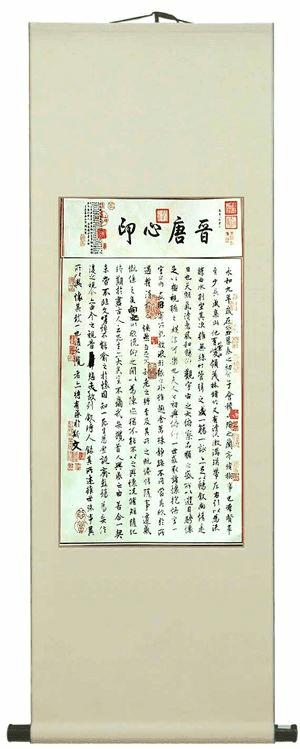 晋唐心印
永和九年歲在癸丑暮春之初會于會稽山陰之蘭亭脩稧事也羣賢畢
至少長咸集此地有峻領茂林脩竹又有清流激湍暎帶左右引以為流
觴曲水列坐其次雖無絲竹管弦之盛一觴一詠亦足以暢敘幽情是
日也天朗氣清惠風和暢仰觀宇宙之大俯察品類之盛所以遊目騁懷
足以極視聽之娛信可樂也夫人之相與俯仰一世或取諸懷抱悟言一
室之內或因寄所託放浪形骸之外雖趣舍萬殊靜躁不同當其欣於所
遇暫得於己快然自足不知老之將至及其所之既惓情隨事遷感
慨係之矣向之所欣俛仰之閒以為陳迹猶不能不以之興懷況脩短隨化
終期於盡古人云死生亦大矣豈不痛哉每攬昔人興感之由若合一契
未嘗不臨文嗟悼不能喻之於懷固知一死生為虛誕齊彭殤為妄作
後之視今亦由今之視昔悲夫故列敘時人錄其所述雖世殊事異
所以興懷其致一也後之攬者亦將有感於斯文